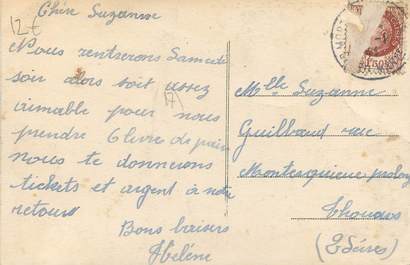 12€
Chère Suzanne
Nous rentrerons Samedi
soir alors soit assez
aimable pour nous
17
prendre 6 livre de pain
nous te donnerons
tickets et argent à notre
retour
Bons baisers
Hélène
Mlle Suzanne
Guilbaud rue
Montesquieue prolong
Thouars
(2 Sèvres)